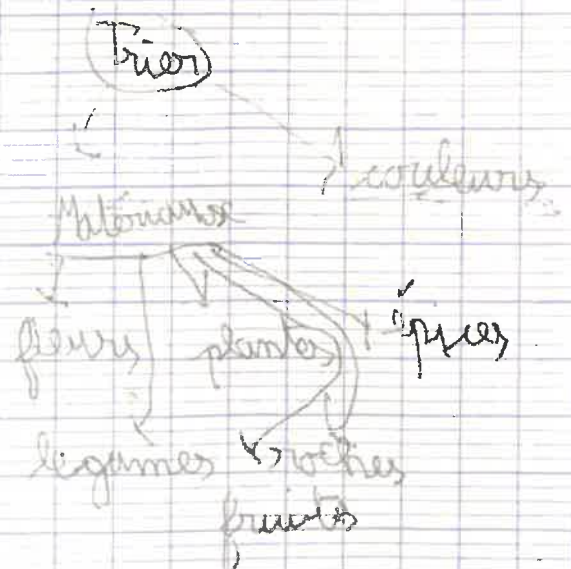 Trier
couleurs
Matériaux
fleurs
plantes
épices
légumes
roches
fruits